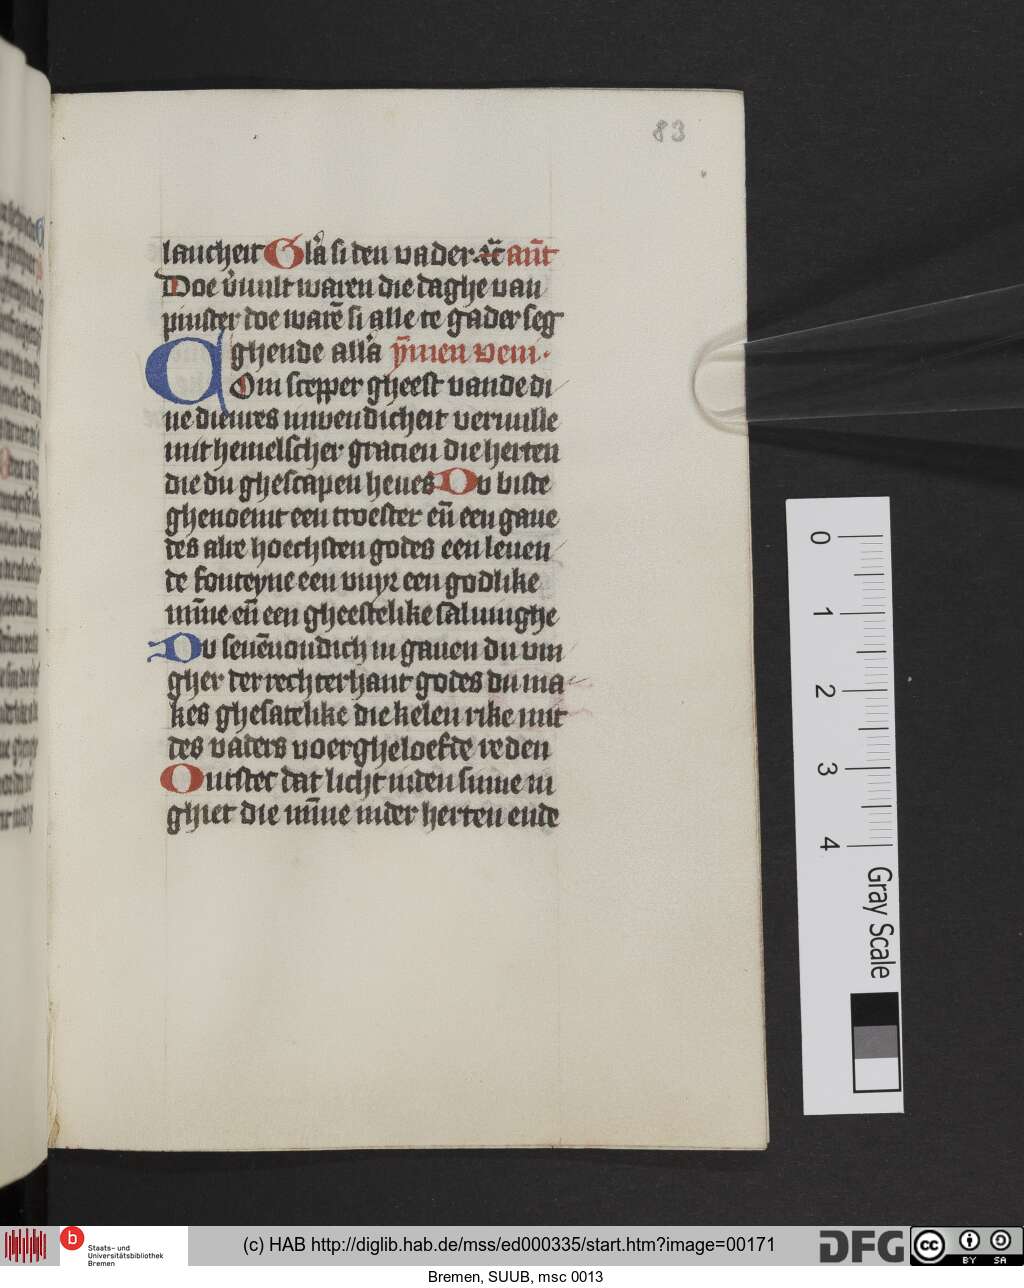 83
laucheit Glã si den vader ⁊c̃ añt
Doe v̾uult waren die daghe van
pinster doe warẽ si alle te gader seg
ghende all'a ỹmen veni.
Com scepper gheest vande di
ne dienres inwendicheit vervulle
mit hemelscher gracien die herten
die du ghescapen heues Du biste
ghenoemt een troester eñ een gaue
des alre hoechsten godes een leuen
de fonteyne een vuyr een godlike
mĩne eñ een gheestelike saluinghe
Du seuẽuondich in gauen du vin
gher der rechterhant godes du ma
kes ghesatelike die kelen rike mit
des vaders voergheloefde reden
Ontstec dat licht inden sinne in
ghiet die mĩne inder herten ende
0
1
2
3
4
Gray Scale
b Staats- und
Universitätsbibliothek
Bremen
(c) HAB http://diglib.hab.de/mss/ed000335/start.htm?image=00171
DFG
cc BY SA
Bremen, SUUB, msc 0013